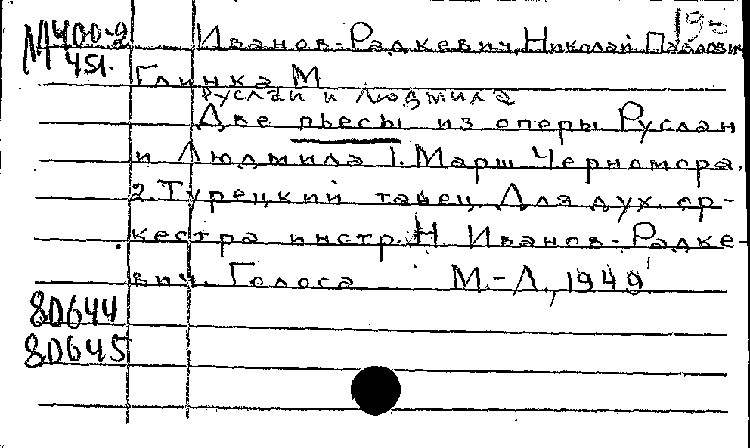 19-
М400-2 Иванов-Радкевич, Николай Павлович
451.
Глинка М
Руслан и Людмила
Две пьесы из оперы Руслан
и Людмила 1. Марш Черномора.
2. Турецкий танец. Для дух. ор-
кестра инстр. Н Иванов-Радке-
вич. Голоса М-Л., 1949
80644
80645